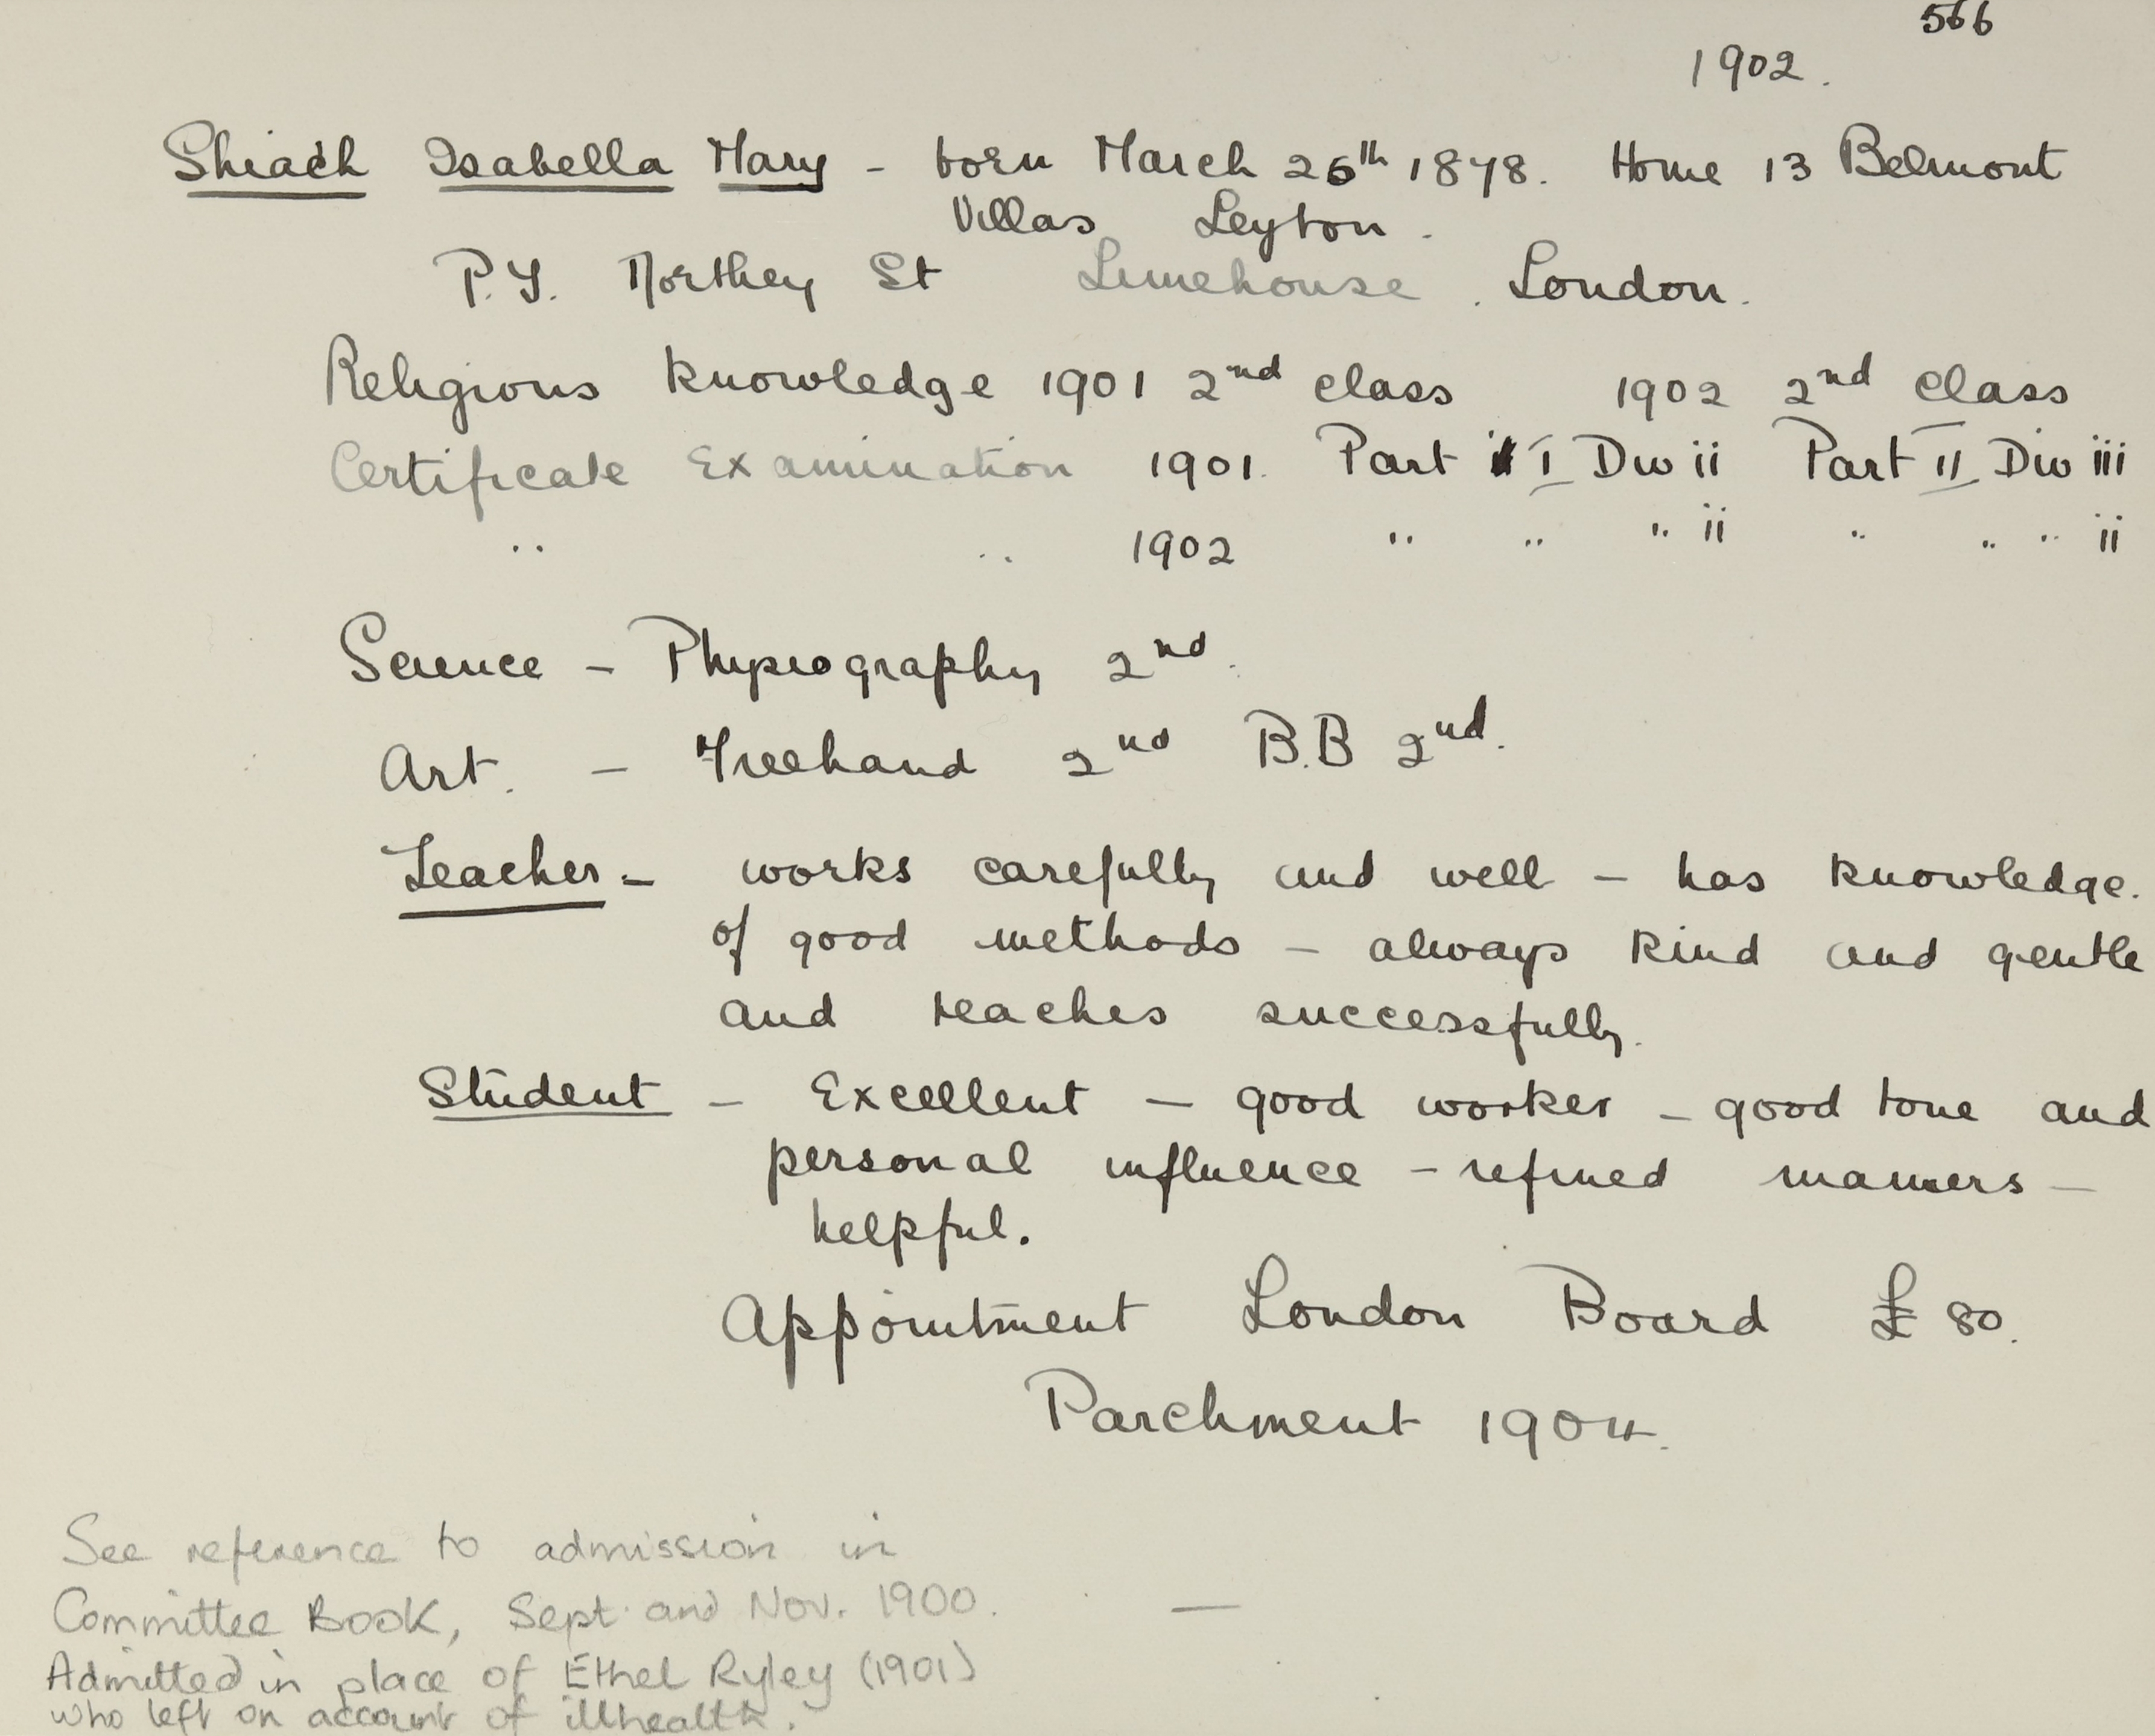 566
1902.
Shiach Isabella Mary - born March 26th 1878. Home 13 Belmont
Villas Leyton.
P.T. Northey St Limehouse. London.
Religious Knowledge 1901 2nd class 1902 2nd class
Certificate Examination 1901. Part I Div ii Part II Div iii
" " 1902 " " " ii " " " ii
Science - Physiography 2nd.
Art. - Freehand 2nd B.B 2nd.
Teacher - works carefully and well - has knowledge.
of good methods - always kind and gentle
and teaches successfully.
Student - Excellent - good worker - good tone and
personal influence - refined manners -
helpful.
Appointment London Board £80.
Parchment 1904.
See reference to admission in
Committee Book, Sept. and Nov. 1900. -
Admitted in place of Ethel Ryley (1901)
who left on account of illhealth.